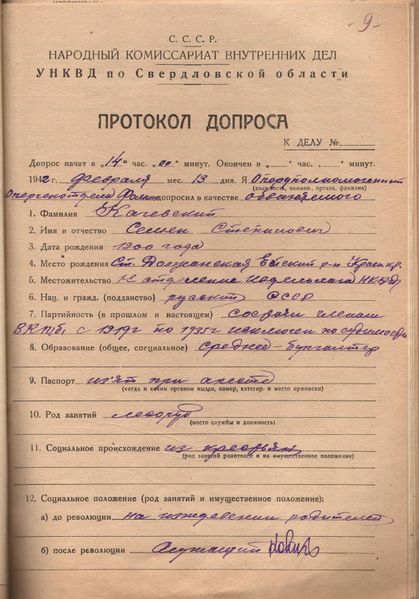 -9-
С. С. С. Р.
НАРОДНЫЙ КОМИССАРИАТ ВНУТРЕННИХ ДЕЛ
УНКВД по Свердловской области
ПРОТОКОЛ ДОПРОСА
К ДЕЛУ №
Допрос начат в "14" час. "00" минут. Окончен в " " час. " " минут.
1942 г. февраля мес. 13 дня. Я Оперуполномоченный
(должность, наимен. органа, фамилия)
допросил в качестве обвиняемого
1. Фамилия Качевский
2. Имя и отчество Семен Степанович
3. Дата рождения 1900 года
4. Место рождения Ст. Ейский р-н
5. Местожительство отделение Ивдельлага НКВД
6. Нац. и гражд. (подданство) русский СССР
7. Партийность (в прошлом и настоящем) состоял членом
ВКП/б/ с 1919г по 1935г исключен по судимости
8. Образование (общее, специальное) Среднее - бухгалтер
9. Паспорт изят при аресте
(когда и каким органом выдан, номер, категор. и место прописки)
10. Род занятий
(место службы и должность)
11. Социальное происхождение из крестьян
(род занятий родителей и их имущественное положение)
12. Социальное положение (род занятий и имущественное положение):
а) до революции на иждевении родителей
б) после революции служащий